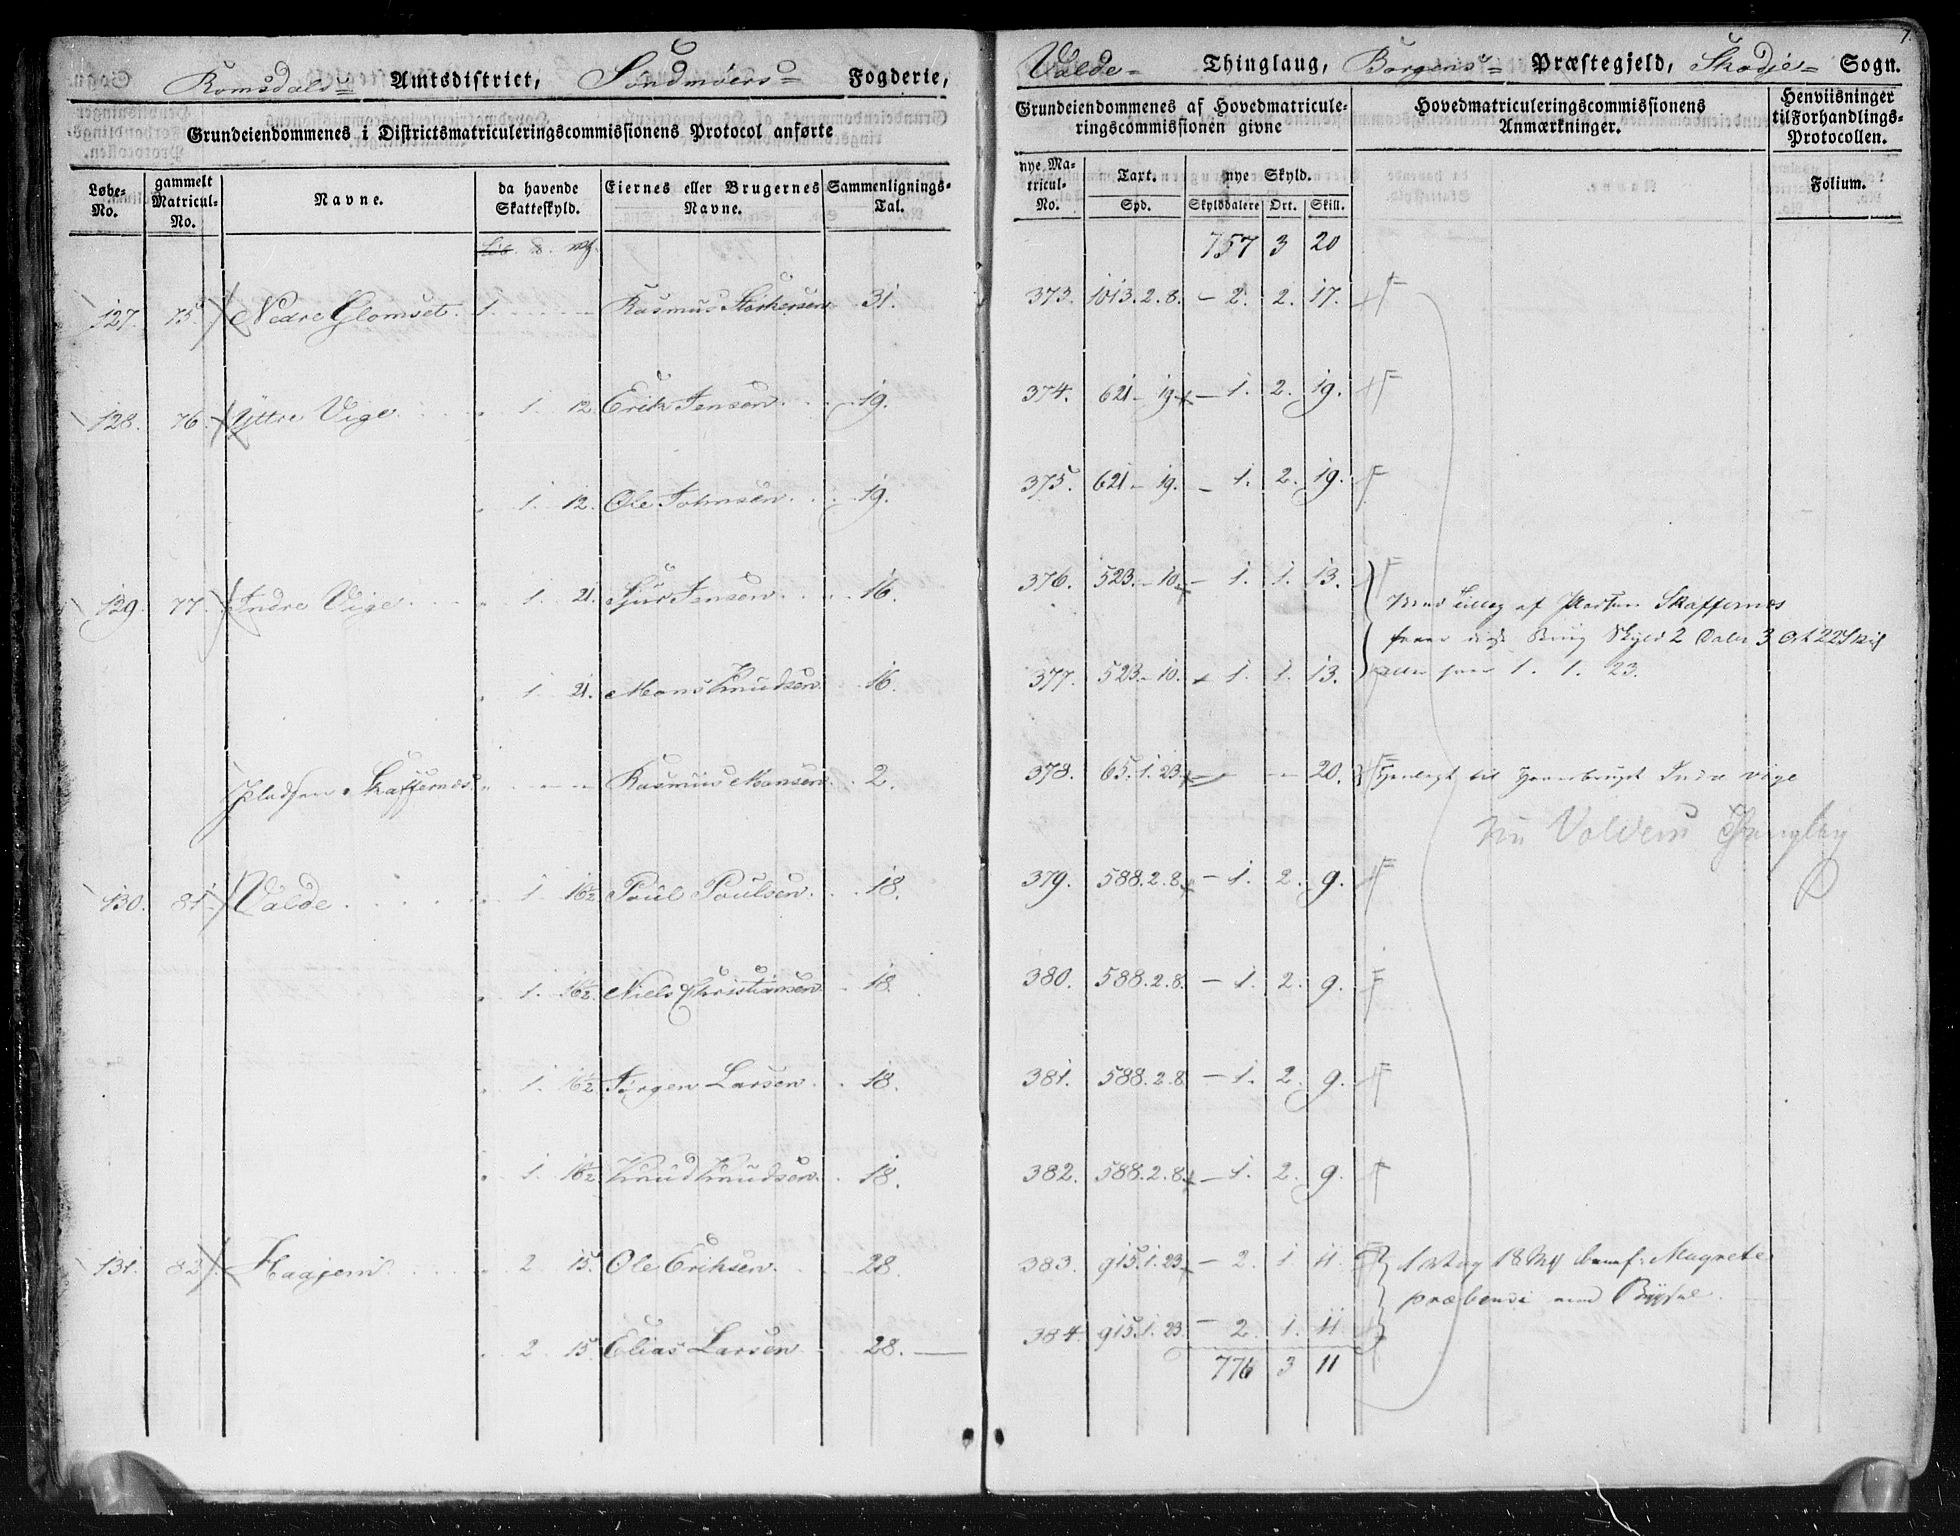 7.
Romsdals Amtsdistrict, Søndmøers Fogderie,
Grundeiendommenes i Districtsmatriculeringscommissionens Protocol anførte
Løbe-No. gammelt Matricul-No. Navne. da havende Skatteskyld. Eiernes eller Brugernes Navne. Sammenlignings-Tal.
127. 75. Nedre Glomset. 1. Rasmus 31.
128. 76. Yttre Vige 1. 12. Erik Jensen 19.
1. 12. Ole Johnsen 19.
129. 77. Indre Vige 1. 21. Sjur Jensen 16.
1. 21. Mons Knudsen 16.
Pladsen Skaffernes Rasmus Monsen 2.
130. 81. Valde 1 16½ Poul Poulsen 18.
1. 16½ Niels Christiansen 18.
1. 16½ Jørgen Larsen 18.
1 16½ Knud Knudsen 18.
131. 82. Haagem 2 15. Ole Eriksen 28.
2 15. Elias Larsen 28.
Valde Thinglaug, Borgens Præstegjeld, Skodje Sogn.
Grundeiendommenes af Hovedmatriculeringscommissionen givne
Hovedmatriculeringscommissionens Anmærkninger.
Henviisninger til Forhandlings-Protocollen.
nye Matricul-No. Taxt. nye Skyld.
Spd. Skylddalere Ort. Skill. Folium.
757 3 20
373. 1013.2.8. - 2. 2. 17.
374. 621 - 19 - 1. 2. 19.
375. 621 - 19. - 1. 2. 19.
376. 523. - 10. - 1. 1. 13.
med Tillæg af Pladsen Skaffernes
Brug Skyld 2 Daler 3 Ort 22 Skil
1. 1. 23.
377. 523. - 10. 1. 1. 13.
378. 65.1.23. - - 20. henlagt til Indre Vige
nu Valdens Thinglag
379. 588.2.8. - 1. 2. 9.
380. 588.2.8. - 1. 2. 9.
381. 588.2.8 - 1. 2. 9.
382. 588.2.8. - 1. 2. 9.
383. 915.1.23. - 2. 1 11. Magrete
præbende med
384. 915.1.23. - 2. 1. 11.
776 3 11